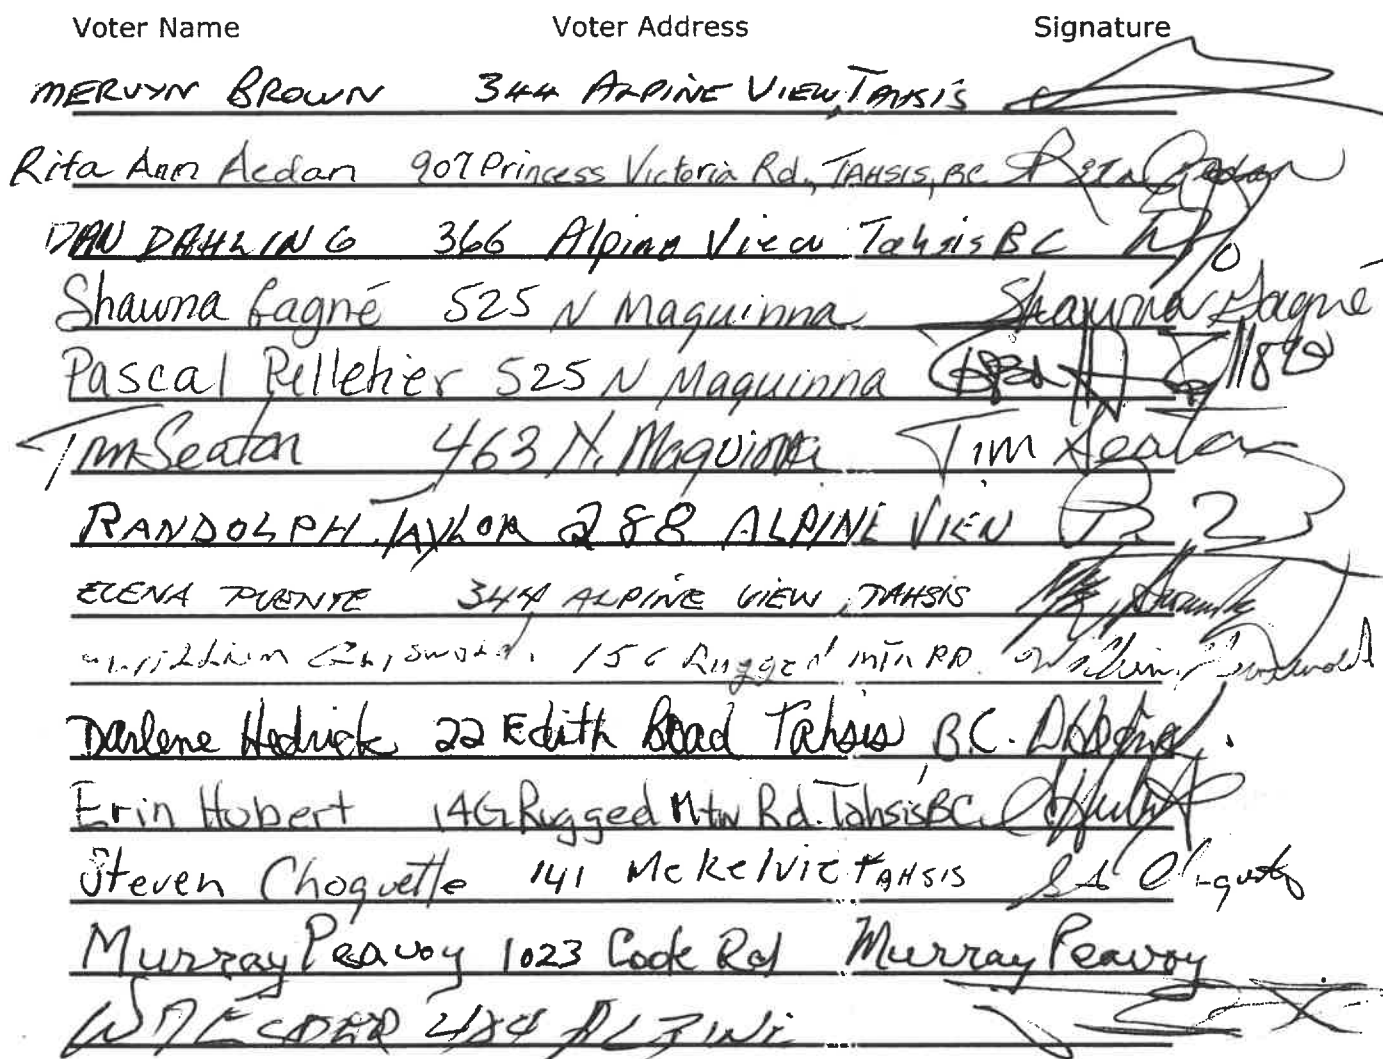 Voter Name Voter Address Signature
MERVYN BROWN 344 ALPINE VIEW, TAHSIS
Rita Ann Aedan 907 Princess Victoria Rd., TAHSIS, BC. Rita Aedan
DAN DAHLING 366 Alpine View Tahsis BC
Shawna Gagné 525 N Maquinna Shawna Gagné
Pascal Pelletier 525 N Maquinna
Tim Seaton 463 N. Maquinna Tim Seaton
RANDOLPH TAYLOR 288 ALPINE VIEW
ELENA PUENTE 344 ALPINE VIEW, TAHSIS
Rugged mtn RD.
Darlene Hedrick 22 Edith Road Tahsis B.C.
Erin Hubert Rugged Mtn Rd. Tahsis BC.
Steven Choquette 141 McKelvie TAHSIS
Murray Peavoy 1023 Cook Rd Murray Peavoy